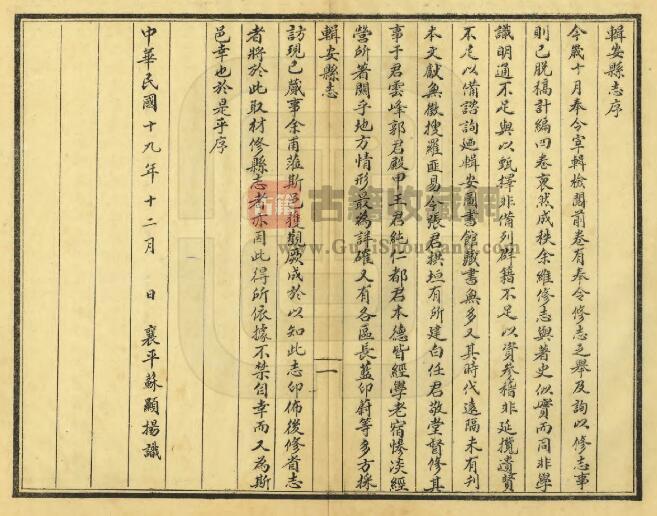 輯安縣志序
今歲十月奉令宰輯檢閱前卷有奉令修志之舉及詢以修志事
則已脫稿計編四卷裒然成秩余維修志與著史似實而同非學
識明通不足與以甄擇非備列群籍不足以資參稽非延攬遺賢
不足以備諮詢廼輯安圖書館藏書無多又其時代遠隔未有刋
本文獻無徵搜羅匪易今張君拱垣有所建白任君敬堂督修其
事于君雲峰郭君殿甲王君純仁都君本德皆經學老宿慘淡經
營所著關乎地方情形最為詳確又有各區長藍印蔚等多方採
輯安縣志
一
訪現已蕆事余甫蒞斯邑獲觀厥成於以知此志印佈後修省志
者將於此取材修縣志者亦因此得所依據不禁自幸而又為斯
邑幸也於是乎序
中華民國十九年十二月 日 襄平蘇顯揚識
古籍 古籍收藏網
www.GuJiShouCang.com